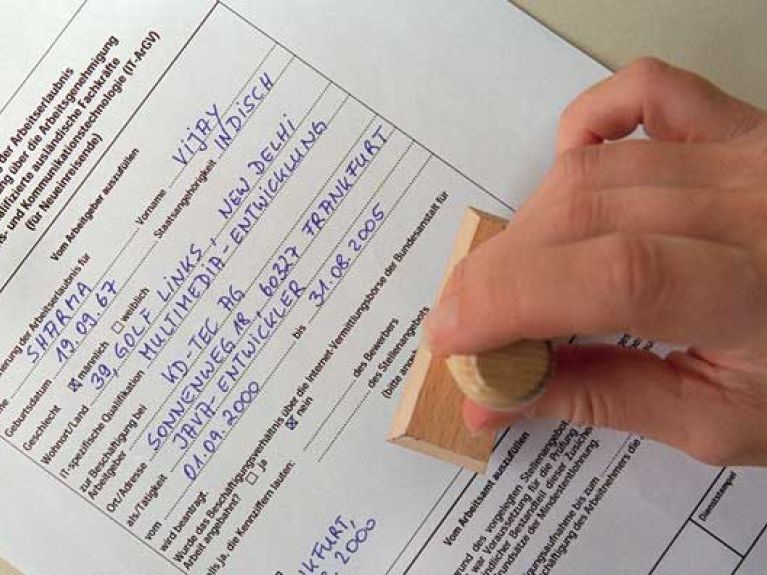 der Arbeitserlaubnis
über die Arbeitsgenehmigung
ausländische Fachkräfte
und Kommunikationstechnologie (IT-ArGV)
(für Neueinreisende)
Vom Arbeitgeber auszufüllen
der Arbeitserlaubnis für
SHARMA Vorname VIJAY
Geburtsdatum 19.09.67 Staatsangehörigkeit INDISCH
Geschlecht ☒ männlich ☐ weiblich
Wohnort/Land 39, GOLF LINKS, NEW DELHI
IT-spezifische Qualifikation MULTIMEDIA-ENTWICKLUNG
zur Beschäftigung bei
Arbeitgeber KD-TEC AG
Ort/Adresse SONNENWEG 18, 60327 FRANKFURT
als/Tätigkeit JAVA-ENTWICKLER
vom 01.09.2000 bis 31.08.2005
wird beantragt.
Wurde das Beschäftigungsverhältnis über die Internet-Vermittlungsbörse der Bundesanstalt für
Arbeit angebahnt? ☐ ja ☒ nein
ja, die Kennziffern lauten:
des Bewerbers
des Stellenangebots
(bitte
2000
Vom Arbeitsamt auszufüllen
des vorgelegten Stellenangebot
Voraussetzung für die Prüfung
Bestandteil dieser
der Mindestentlohnung.
bis zum
des Arbeitnehmers die
Dienststempel